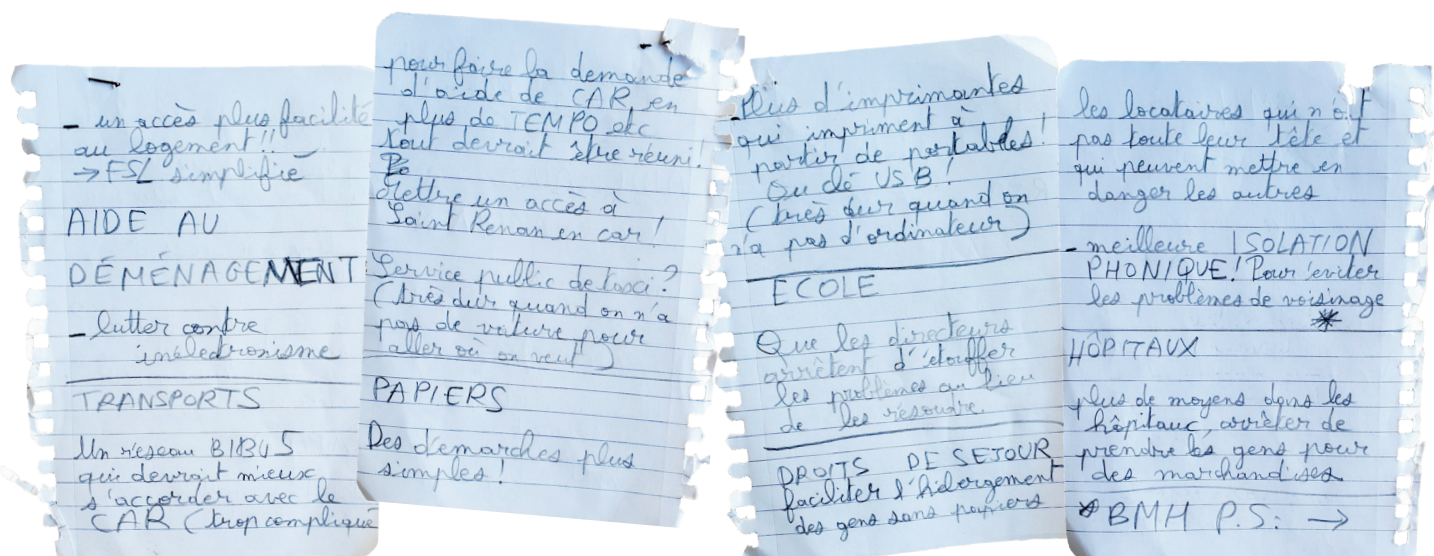 - un accès plus facilité
au logement!!
→ FSL simplifié
AIDE AU
DÉMÉNAGEMENT
- lutter contre
inélectronisme
TRANSPORTS
Un réseau BIBUS
qui devrait mieux
s'accorder avec le
CAR (trop compliqué
pour faire la demande
d'aide de CAR, en
plus de TEMPO etc
tout devrait être réuni!
Po
Mettre un accès à
Saint Renan en car!
Service public de taxi?
(très dur quand on n'a
pas de voiture pour
aller où on veut)
PAPIERS
Des démarches plus
simples!
Plus d'imprimantes
qui impriment à
partir de portables!
Ou clé USB!
(très dur quand on
n'a pas d'ordinateur)
ECOLE
Que les directeurs
arrêtent d'étouffer
les problèmes au lieu
de les résoudre.
DROITS DE SEJOUR
faciliter l'hébergement
des gens sans papiers
les locataires qui n'ont
pas toute leur tête et
qui peuvent mettre en
danger les autres
- meilleure ISOLATION
PHONIQUE! Pour éviter
les problèmes de voisinage
*
HÔPITAUX
plus de moyens dans les
hôpitaux, arrêter de
prendre les gens pour
des marchandises
* BMH P.S: →